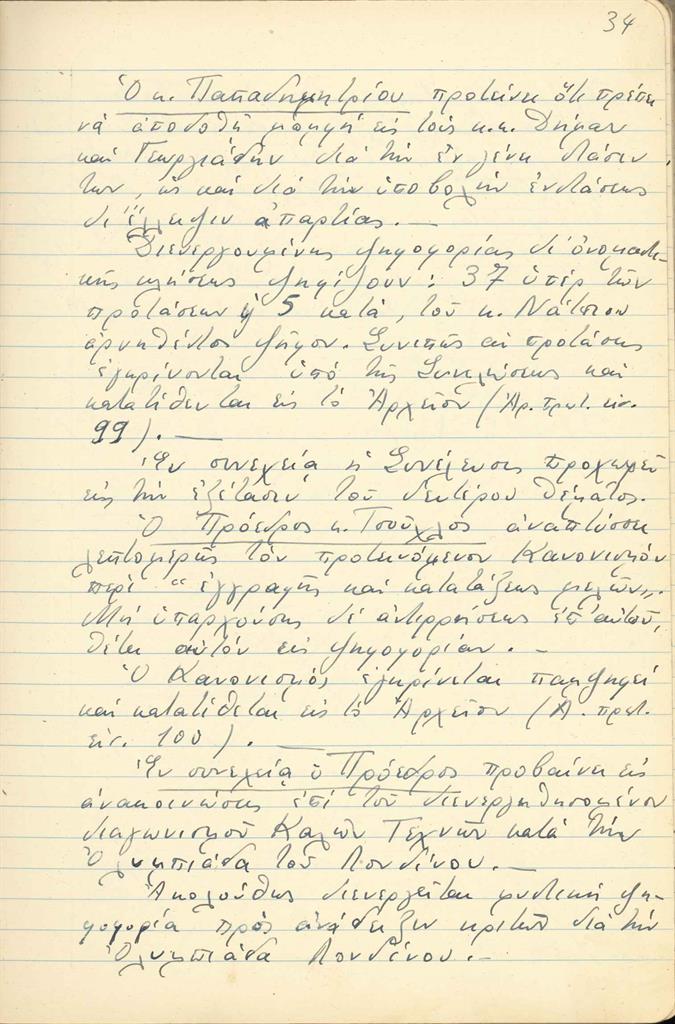 34
Ὁ κ. Παπαδημητρίου προτείνει ὅτι πρέπει
νά ἀποδοθῇ μομφή εἰς τούς κ.κ. Δήμαν
καί Γεωργιάδην διά τήν ἐν γένει στάσιν
των, ὡς καί διά τήν ὑποβολήν ἐνστάσεως
δι' ἔλλειψιν ἀπαρτίας. —
Διενεργουμένης ψηφοφορίας δι' ὀνομαστι-
κῆς κλήσεως ψηφίζουν: 37 ὑπέρ τῶν
προτάσεων ἤ 5 κατά, τοῦ κ. Νάτσιου
ἀρνηθέντος ψῆφον. Συνεπῶς αἱ προτάσεις
ἐγκρίνονται ὑπό τῆς Συνελεύσεως καί
κατατίθενται εἰς τό Ἀρχεῖον (Ἀρ. πρωτ. εἰσ.
99). —
Ἐν συνεχείᾳ ἡ Συνέλευσις προχωρεῖ
εἰς τήν ἐξέτασιν τοῦ δευτέρου θέματος.
Ὁ Πρόεδρος κ. Τσοῦχλος ἀναπτύσσει
λεπτομερῶς τόν προτεινόμενον Κανονισμόν
περί "ἐγγραφῆς καί κατατάξεως μελῶν".
Μή ὑπαρχούσης δέ ἀντιρρήσεως ἐπ' αὐτοῦ,
θέτει αὐτόν εἰς ψηφοφορίαν. —
Ὁ Κανονισμός ἐγκρίνεται παμψηφεί
καί κατατίθεται εἰς τό Ἀρχεῖον (Ἀ. πρωτ.
εἰσ. 100). —
Ἐν συνεχείᾳ ὁ Πρόεδρος προβαίνει εἰς
ἀνακοινώσεις ἐπί τοῦ διενεργηθησομένου
διαγωνισμοῦ Καλῶν Τεχνῶν κατά τήν
Ὀλυμπιάδα τοῦ Λονδίνου. —
Ἀκολούθως διενεργεῖται μυστική ψη-
φοφορία πρός ἀνάδειξιν κριτῶν διά τήν
Ὀλυμπιάδα Λονδίνου. —